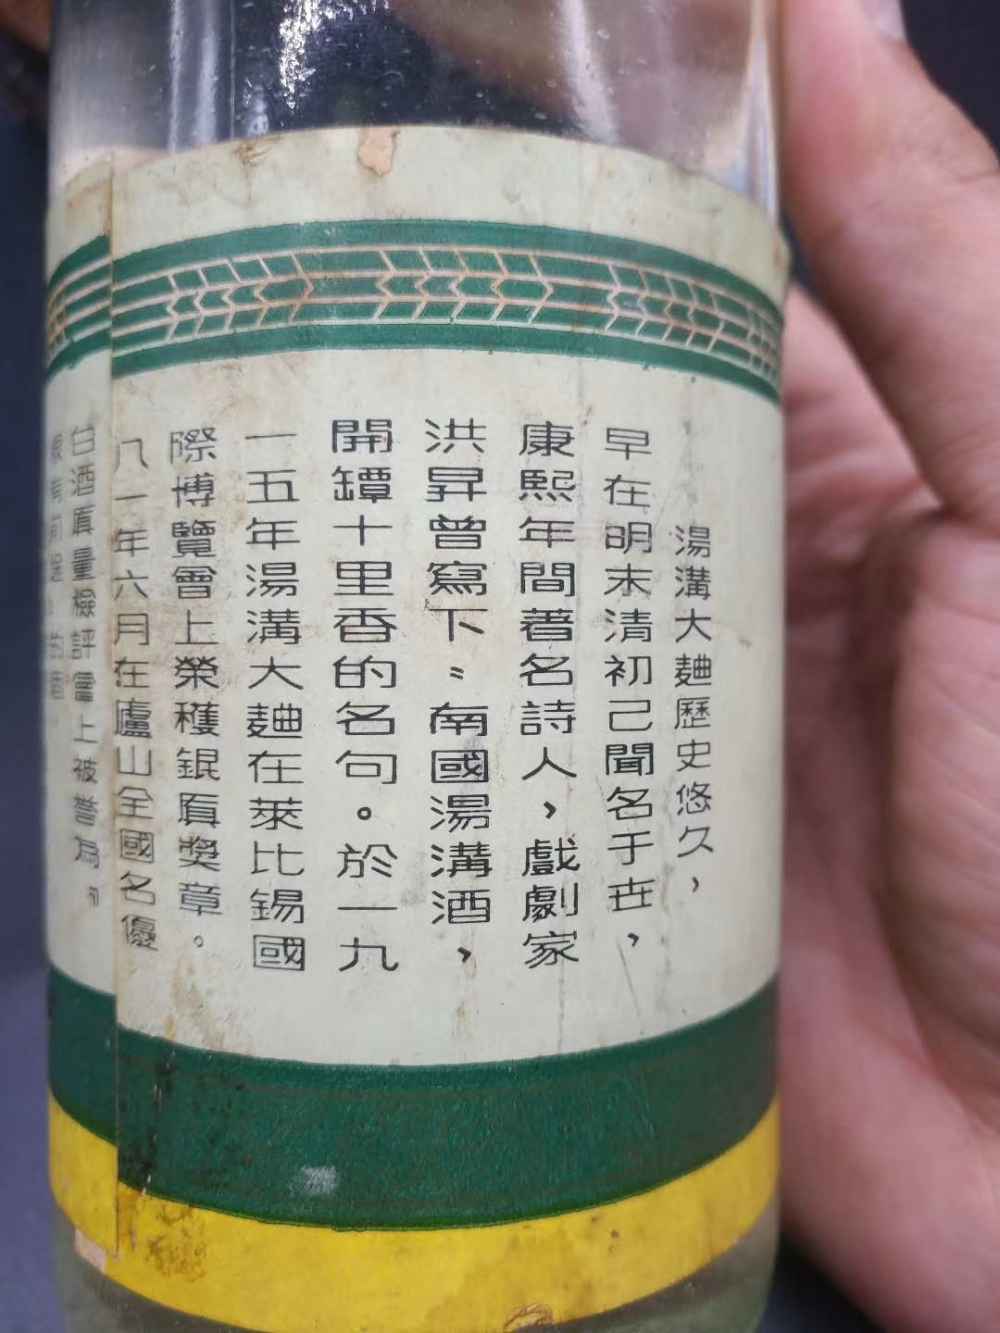 湯溝大麯歷史悠久，
早在明末清初己聞名于世，
康熙年間著名詩人，戲劇家
洪昇曾寫下："南國湯溝酒，
開罈十里香的名句。於一九
一五年湯溝大麯在萊比錫國
際博覽會上榮穫銀質獎章。
八一年六月在廬山全國名優
白酒質量檢評會上被譽為"